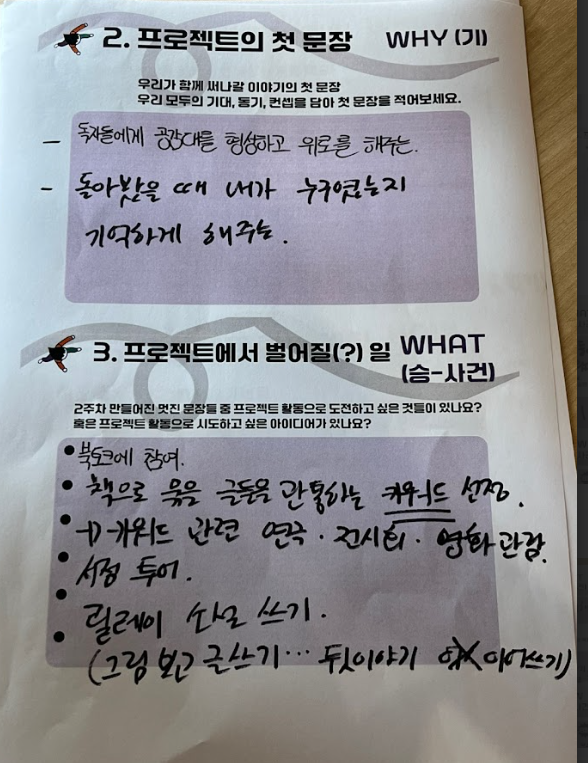 2. 프로젝트의 첫 문장 WHY (기)
우리가 함께 써나갈 이야기의 첫 문장
우리 모두의 기대, 동기, 컨셉을 담아 첫 문장을 적어보세요.
- 독자들에게 공감대를 형성하고 위로를 해주는.
- 돌아봤을 때 내가 누구였는지
기억하게 해주는.
3. 프로젝트에서 벌어질(?) 일 WHAT
(승-사건)
2주차 만들어진 멋진 문장들 중 프로젝트 활동으로 도전하고 싶은 것들이 있나요?
혹은 프로젝트 활동으로 시도하고 싶은 아이디어가 있나요?
• 북토크에 참여.
• 책으로 묶은 글들을 관통하는 키워드 선정.
• → 키워드 관련 연극·전시회·영화 관람.
• 서점 투어.
• 릴레이 소설 쓰기.
• (그림 보고 글쓰기… 뒷이야기 이어쓰기)